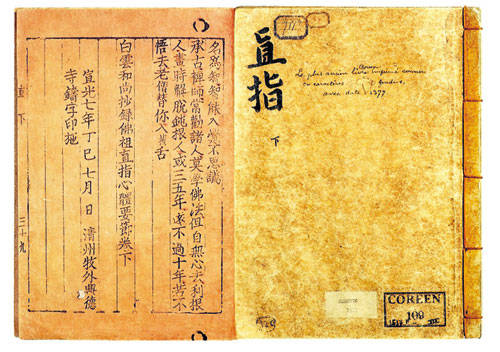 III
直指
下
Coréen
Le plus ancien livre imprimé connu
en caractères fondus,
avec date : 1377
COREEN
109
名爲 能入 不思議
承古禪師常勸諸人莫學佛法但自無心去利根
人畫時解脫鈍根人或三五年遠不過十年若不
悟去老僧替你入 舌
白雲和尚抄錄佛祖直指心體要節卷下
宣光七年丁巳七月 日 清州牧外興德
寺鑄字印施
直下
三十九